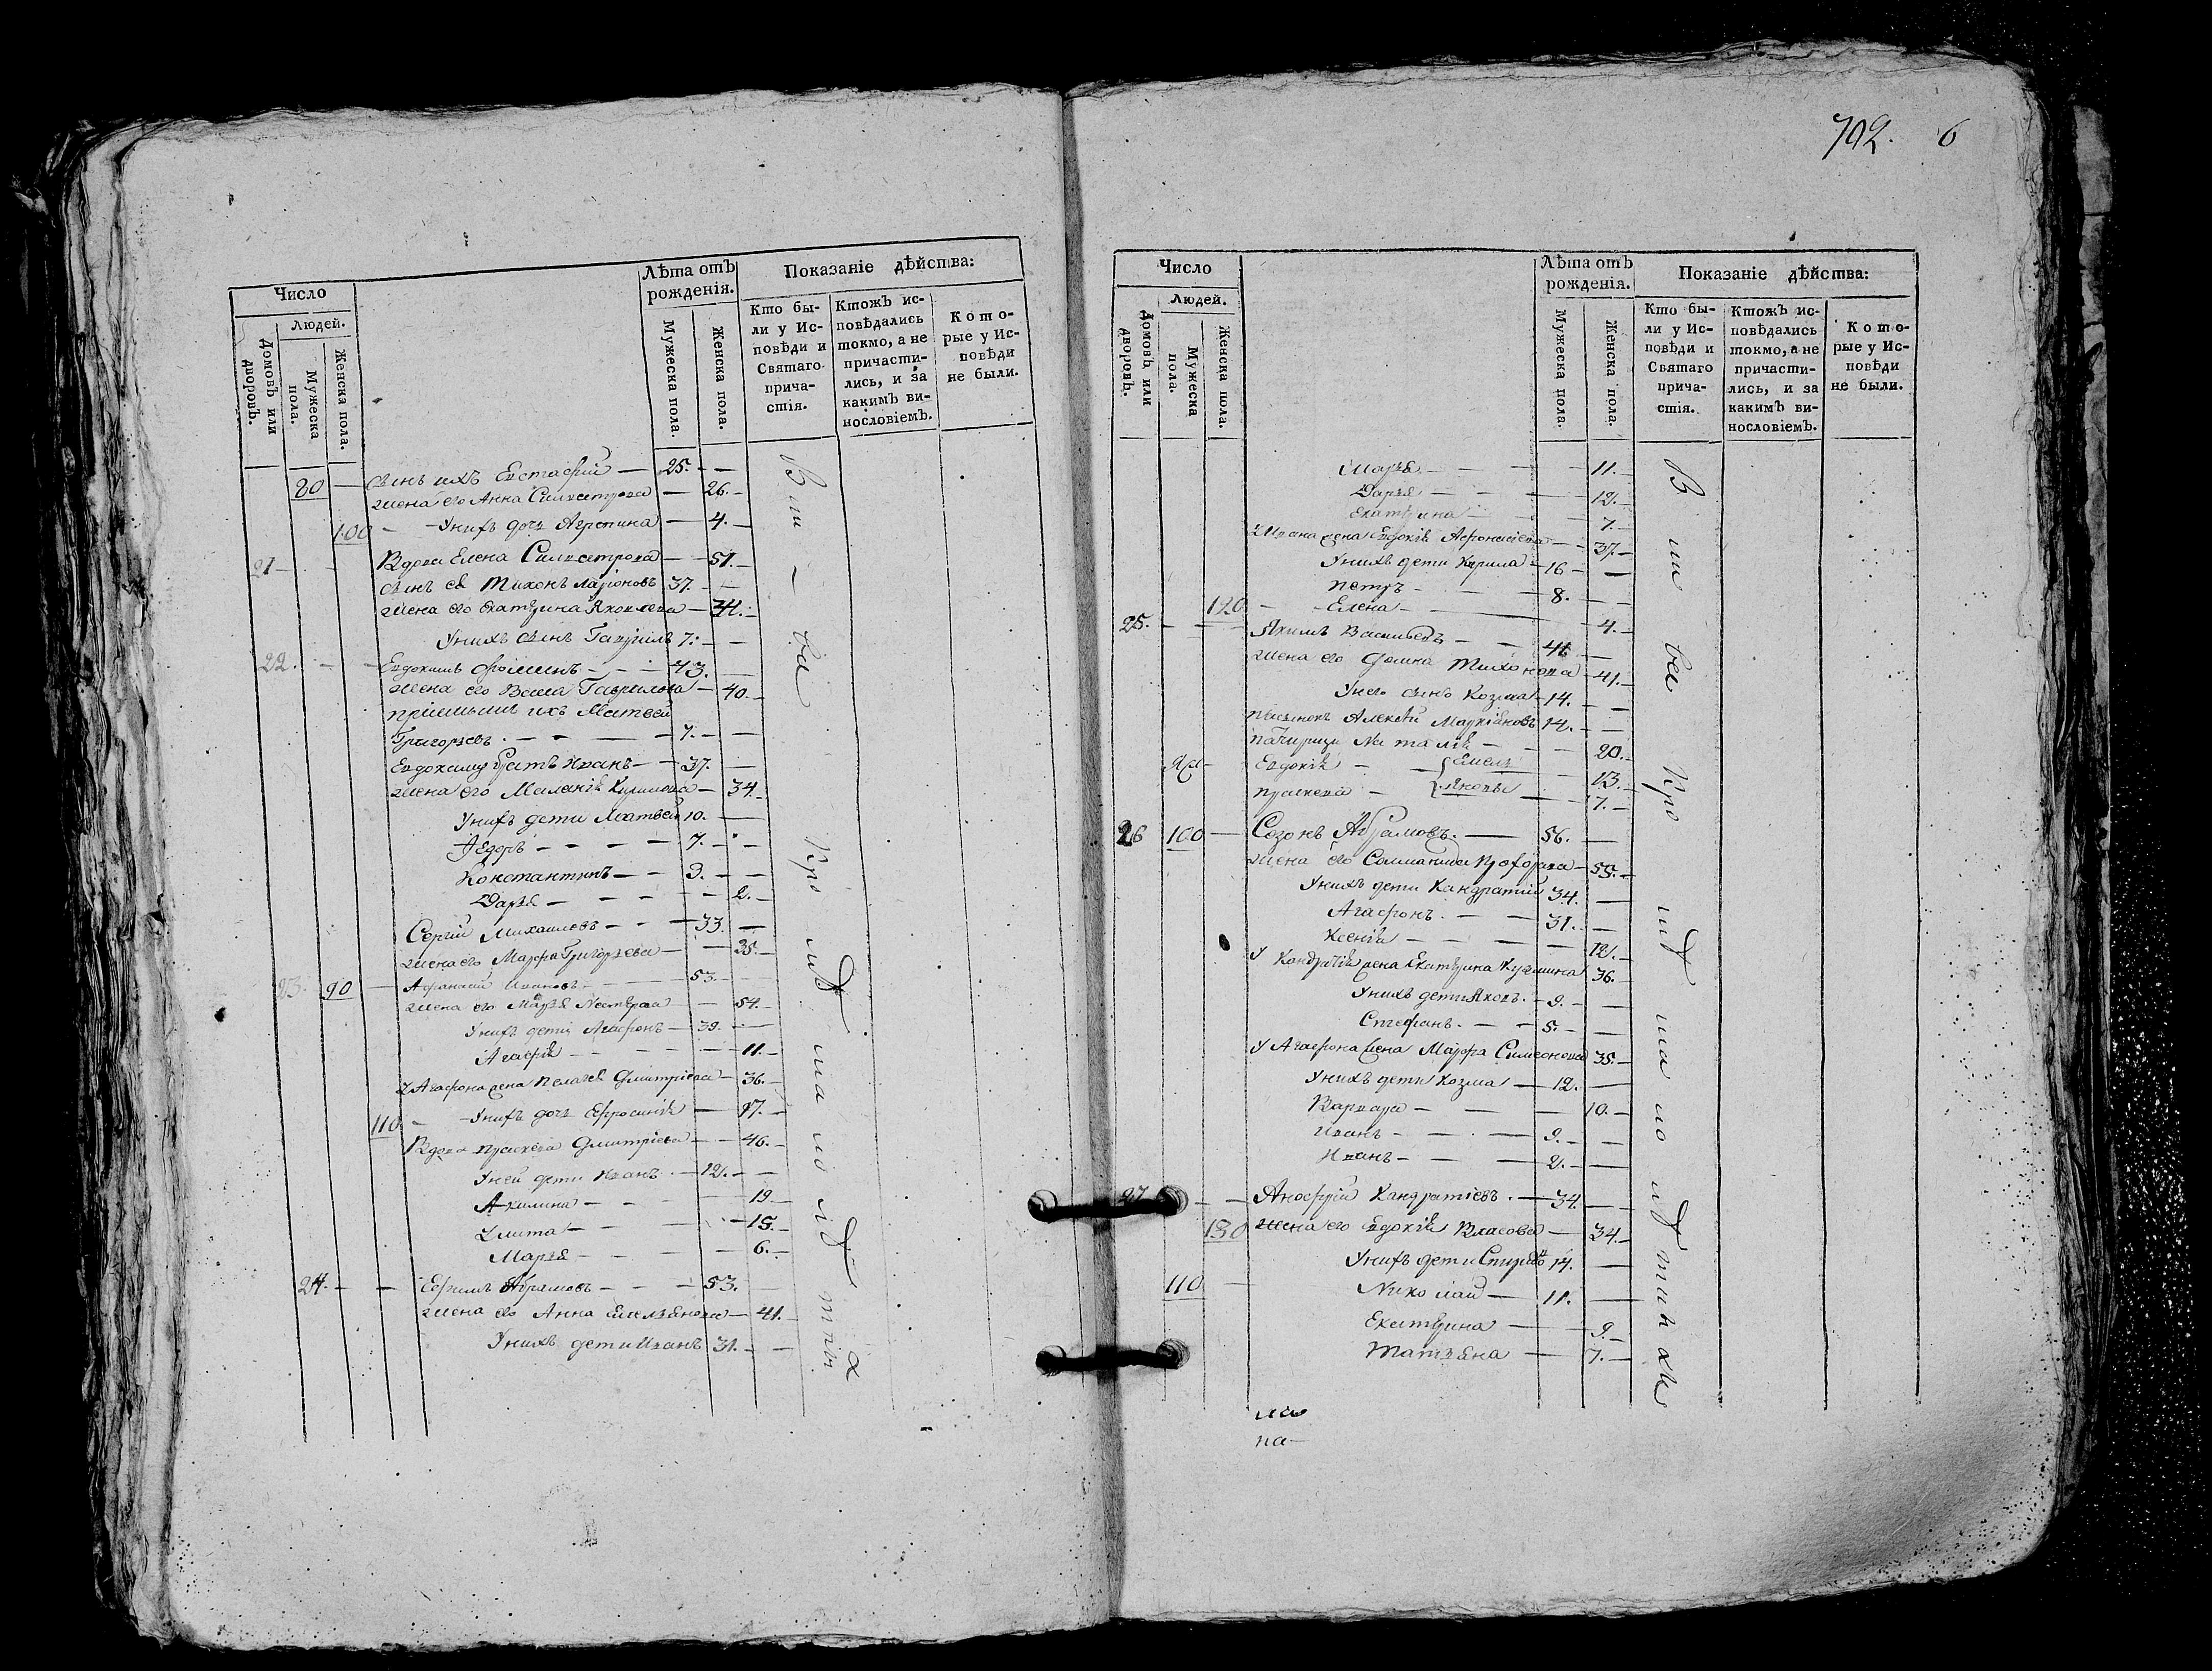 702. 6
Число
Людей.
Домовъ или дворовъ.
Мужеска пола.
Женска пола.
Лѣта отъ рожденія.
Мужеска пола.
Женска пола.
Показаніе дѣйства:
Кто были у Исповѣди и Святаго причастія.
Ктожъ исповѣдались токмо, а не причастились, и за какимъ винословіемъ.
Которые у Исповѣди не были.
80 — сынъ ихъ Евстафий — 25. —
жена его Анна Силвестрова — 26. —
100 — Унихъ дочь Агрепина — 4. —
21 — Вдова Елена Силвестрова — 51. —
сынъ ея Тихонъ Ларіоновъ 37. —
жена его Екатерина Яковлева — 34. —
Унихъ сынъ Гаврилъ 7. —
22. — Евдокимъ Фоминъ — 43. —
жена его Васса Гаврилова — 40. —
приемышъ ихъ Матвей
Григорьевъ. — 7. —
Евдокиму братъ Иванъ — 37. —
жена его Меланія Кирилова — 34. —
Унихъ дети Матвей 10. —
Федоръ — 7. —
Константинъ — 3. —
Дарья — 2. —
Сергий Михаиловъ — 33. —
жена его Марфа Григорьева — 35. —
23. 90 — Афанасий Ивановъ — 53. —
жена его Марья Нестерова — 54. —
Унихъ дети Агафонъ — 39. —
Агафія — 11. —
У Агафона жена Пелагея Дмитріева — 36. —
110 — Унихъ дочь Ефросинія — 17. —
Вдова Праскева Дмитріева — 46. —
Уней дети Иванъ — 12. —
Акилина — 19 —
Улита — 15. —
Марья — 6. —
24. — Ефимъ Абрамовъ — 53. —
жена его Анна Емельянова — 41. —
Унихъ дети Иванъ 31. —
Число
Людей.
Домовъ или дворовъ.
Мужеска пола.
Женска пола.
Лѣта отъ рожденія.
Мужеска пола.
Женска пола.
Показаніе дѣйства:
Кто были у Исповѣди и Святаго причастія.
Ктожъ исповѣдались токмо, а не причастились, и за какимъ винословіемъ.
Которые у Исповѣди не были.
Марья — 11. —
Дарья — 12. —
Екатерина — 7. —
У Ивана жена Евдокія Афонасіева — 37. —
Унихъ дети Кирила — 16 —
Петръ — 8. —
120 — Елена — 4. —
25. — Якимъ Васильевъ — 44 —
жена его Домна Тихонова — 41. —
Унего сынъ Козма — 14. —
Алексѣй Маркіановъ 14. —
Наталія — 20. —
Евдокія — 13. —
Праскева — 7. —
26 100 — Созонъ Абрамовъ. — 56. —
жена его Соломанида Прохорова — 55. —
Унихъ дети Кандратий 34. —
Агафонъ. — 31. —
Ксенія — 12. —
У Кондратія жена Екатерина Кузмина 36. —
Унихъ дети Яковъ. — 9. —
Стефанъ. — 5. —
У Агафона жена Марфа Симеонова 35. —
Унихъ дети Козма — 12. —
Варвара — 10. —
Иванъ — 9. —
Иванъ — 2. —
27 — Анофрій Кандратіевъ. — 34 —
130 жена его Евдокія Власова — 34. —
Унихъ дети Спиридонъ 14. —
110 — Николай — 11. —
Екатерина — 9. —
Татьяна — 7. —